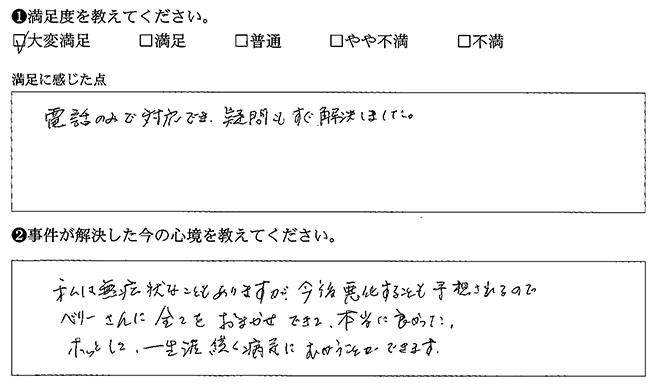 ❶満足度を教えてください。
☑大変満足 □満足 □普通 □やや不満 □不満
満足に感じた点
電話のみで対応でき、疑問もすぐ解決しました。
❷事件が解決した今の心境を教えてください。
私は無症状なこともありますが、今後悪化することも予想されるので
ベリーさんに全てをおまかせできて、本当に良かった。
ホッとして、一生涯続く病気にむかうことができます。